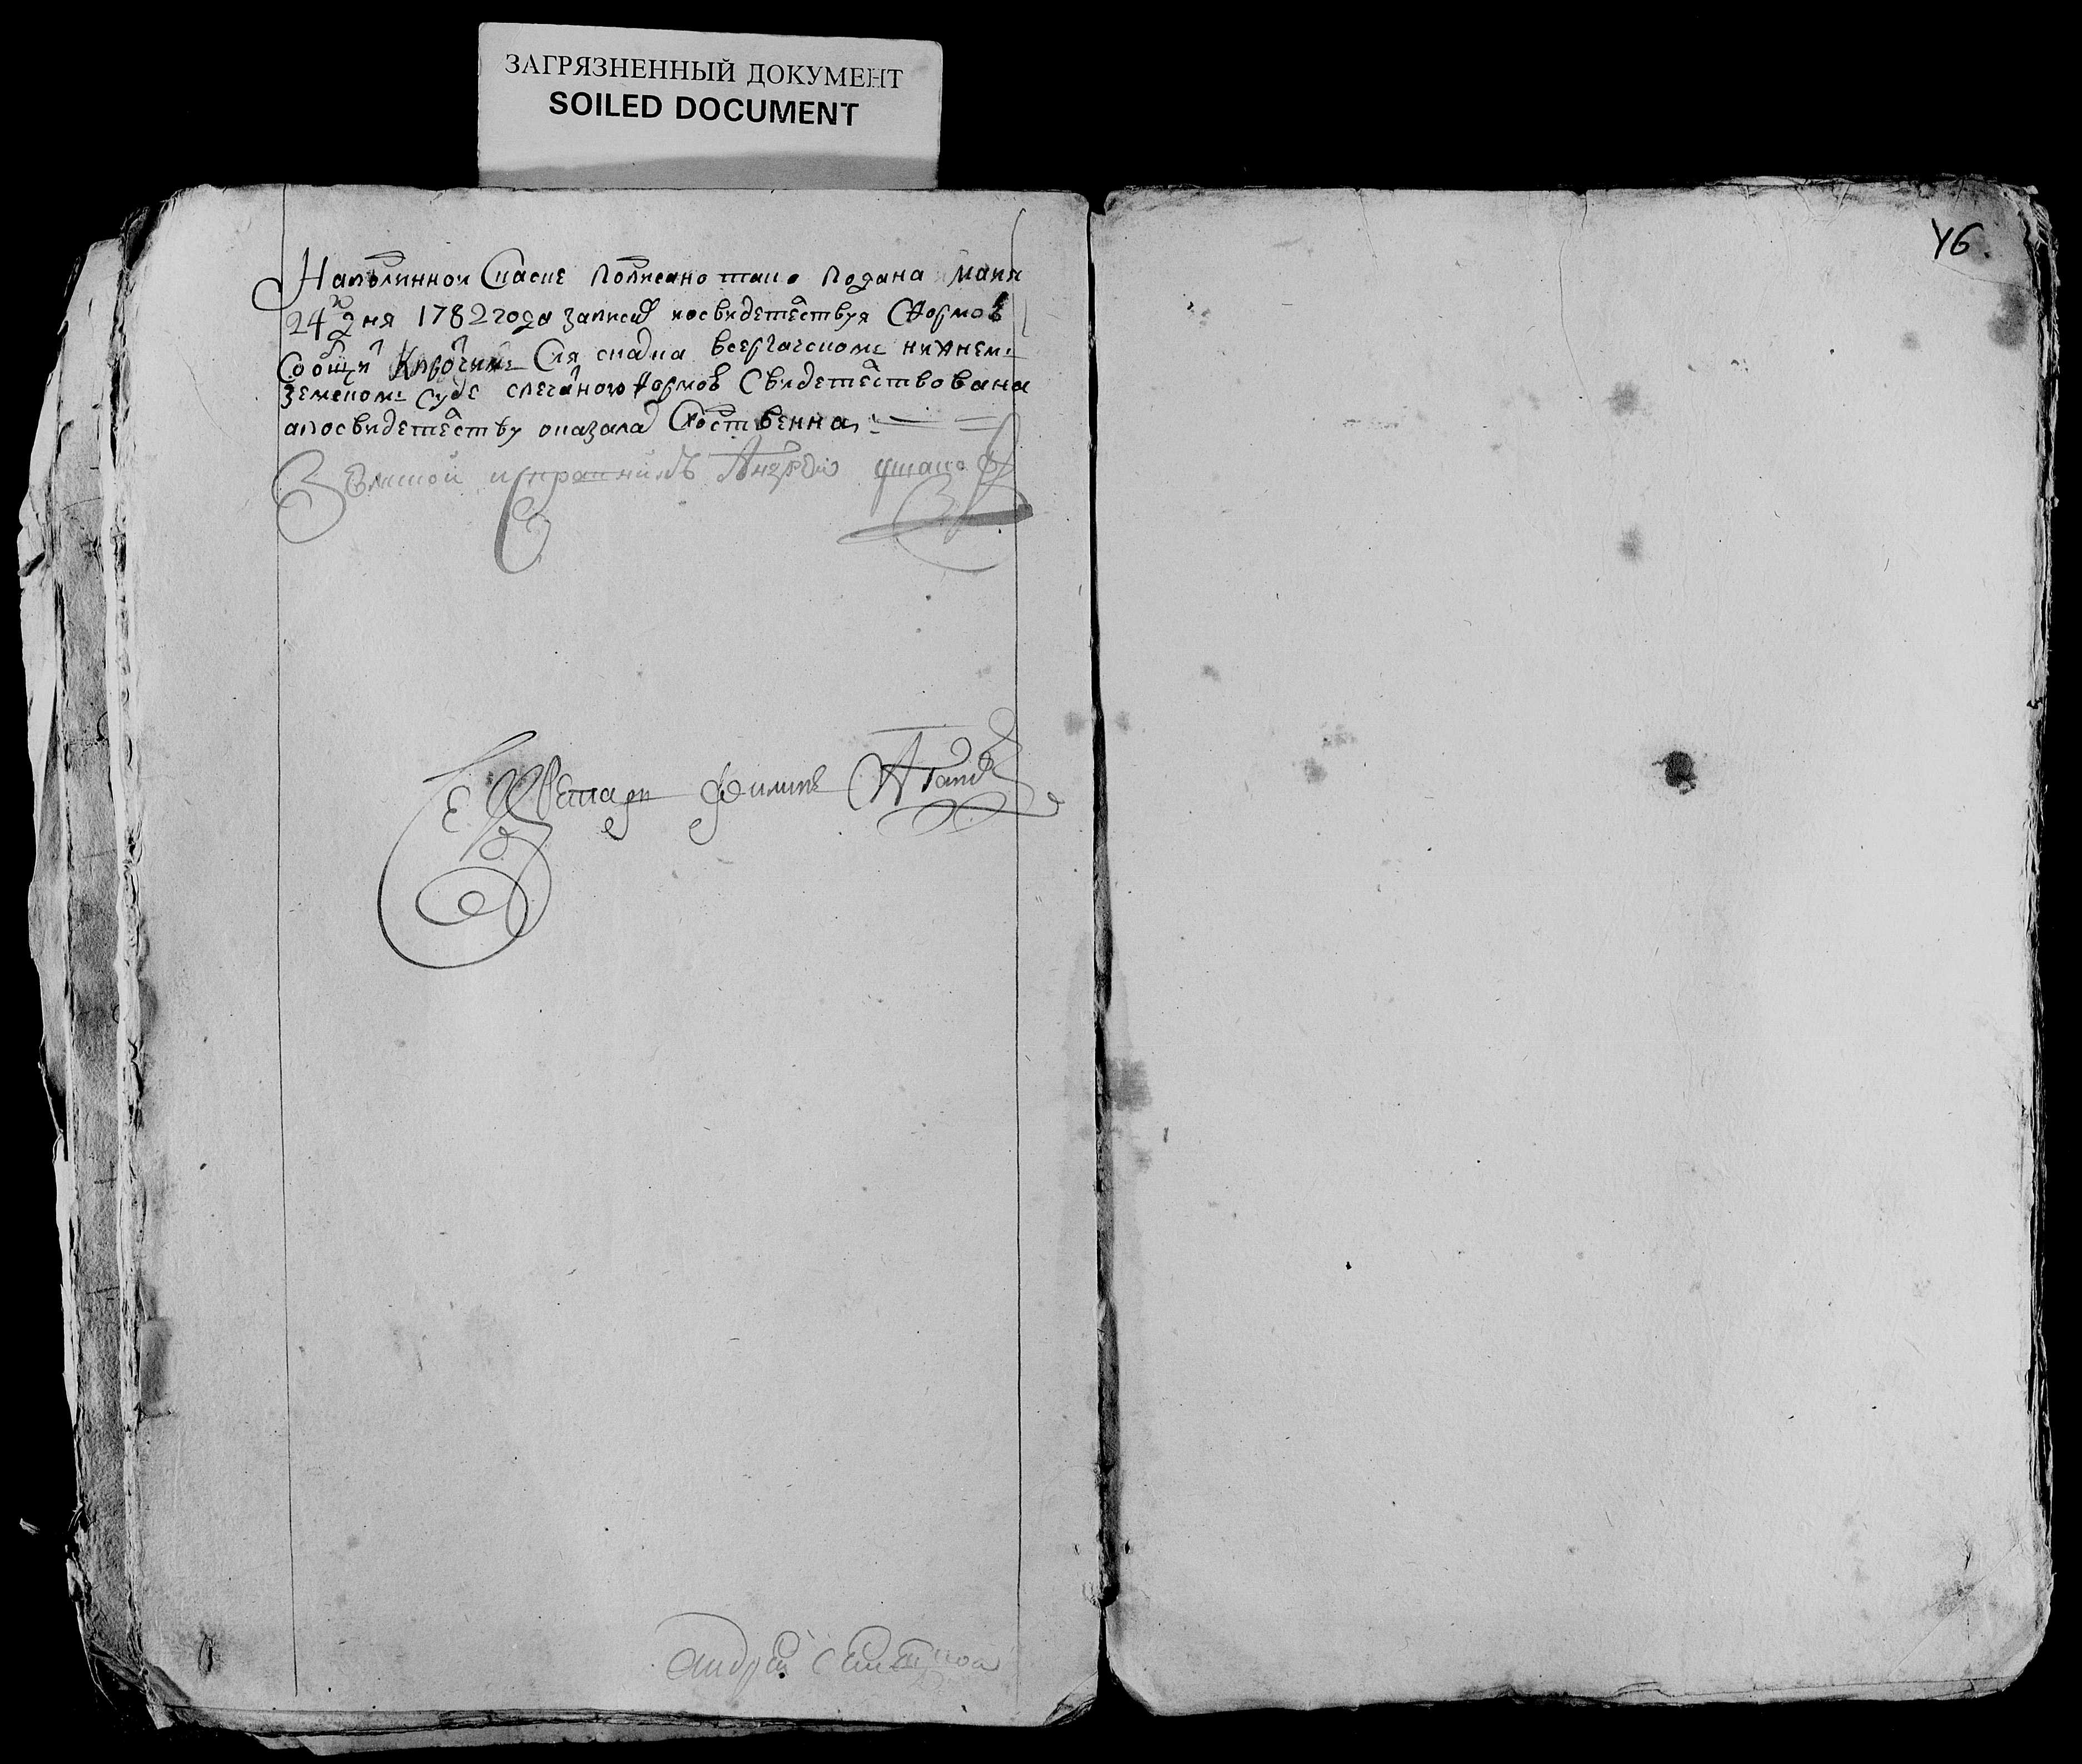 ЗАГРЯЗНЕННЫЙ ДОКУМЕНТ
SOILED DOCUMENT
46.
На подлинной скаске подписано тако подана маия
24 дня 1782 года записав и освидетельствуя с формою
сообщить Сия скаска в сергачском нижнем
земском суде с печатною формою свидетельствована
а по свидетельству оказалась сходственна
Земской исправникъ Андрей Ушаков
Секретарь Филип Агапов
андрей